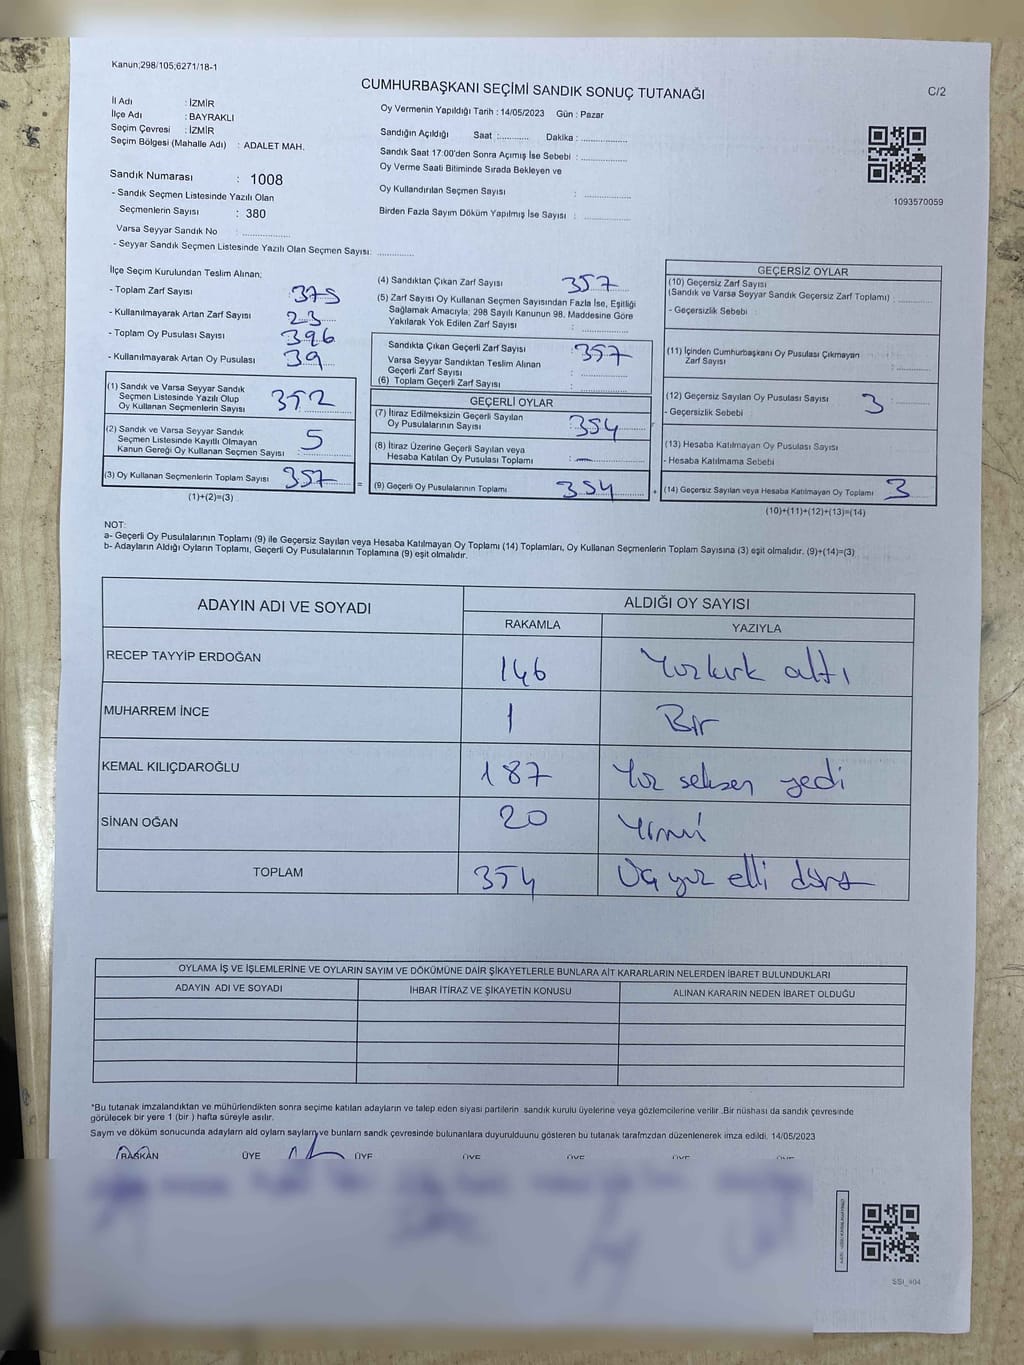 Kanun;298/105,6271/18-1
CUMHURBAŞKANI SEÇİMİ SANDIK SONUÇ TUTANAĞI
C/2
İl Adı : İZMİR
İlçe Adı : BAYRAKLI
Seçim Çevresi : İZMİR
Seçim Bölgesi (Mahalle Adı) : ADALET MAH.
Oy Vermenin Yapıldığı Tarih : 14/05/2023 Gün : Pazar
Sandığın Açıldığı Saat :........... Dakika : ..................
Sandık Saat 17:00'den Sonra Açımış İse Sebebi : ................
Oy Verme Saati Bitiminde Sırada Bekleyen ve
Oy Kullandırılan Seçmen Sayısı : ................
Birden Fazla Sayım Döküm Yapılmış İse Sayısı : ................
1093570059
Sandık Numarası : 1008
- Sandık Seçmen Listesinde Yazılı Olan
Seçmenlerin Sayısı : 380
Varsa Seyyar Sandık No : ................
- Seyyar Sandık Seçmen Listesinde Yazılı Olan Seçmen Sayısı: .............
İlçe Seçim Kurulundan Teslim Alınan;
- Toplam Zarf Sayısı 375
- Kullanılmayarak Artan Zarf Sayısı 23
- Toplam Oy Pusulası Sayısı 396
- Kullanılmayarak Artan Oy Pusulası 39
(1) Sandık ve Varsa Seyyar Sandık
Seçmen Listesinde Yazılı Olup
Oy Kullanan Seçmenlerin Sayısı 352
(2) Sandık ve Varsa Seyyar Sandık
Seçmen Listesinde Kayıtlı Olmayan
Kanun Gereği Oy Kullanan Seçmen Sayısı : 5
(3) Oy Kullanan Seçmenlerin Toplam Sayısı 357 =
(1)+(2)=(3)
(4) Sandıktan Çıkan Zarf Sayısı 357
(5) Zarf Sayısı Oy Kullanan Seçmen Sayısından Fazla İse, Eşitliği
Sağlamak Amacıyla; 298 Sayılı Kanunun 98. Maddesine Göre
Yakılarak Yok Edilen Zarf Sayısı : ................
Sandıkta Çıkan Geçerli Zarf Sayısı : 357
Varsa Seyyar Sandıktan Teslim Alınan
Geçerli Zarf Sayısı : ................
(6) Toplam Geçerli Zarf Sayısı : ................
GEÇERLİ OYLAR
(7) İtiraz Edilmeksizin Geçerli Sayılan
Oy Pusulalarının Sayısı 354
(8) İtiraz Üzerine Geçerli Sayılan veya
Hesaba Katılan Oy Pusulası Toplamı : —
(9) Geçerli Oy Pusulalarının Toplamı 354 +
GEÇERSİZ OYLAR
(10) Geçersiz Zarf Sayısı
(Sandık ve Varsa Seyyar Sandık Geçersiz Zarf Toplamı) : ...........
- Geçersizlik Sebebi :
(11) İçinden Cumhurbaşkanı Oy Pusulası Çıkmayan
Zarf Sayısı : ...........
(12) Geçersiz Sayılan Oy Pusulası Sayısı 3
- Geçersizlik Sebebi
(13) Hesaba Katılmayan Oy Pusulası Sayısı
- Hesaba Katılmama Sebebi
(14) Geçersiz Sayılan veya Hesaba Katılmayan Oy Toplamı 3
(10)+(11)+(12)+(13)=(14)
NOT:
a- Geçerli Oy Pusulalarının Toplamı (9) ile Geçersiz Sayılan veya Hesaba Katılmayan Oy Toplamı (14) Toplamları, Oy Kullanan Seçmenlerin Toplam Sayısına (3) eşit olmalıdır. (9)+(14)=(3)
b- Adayların Aldığı Oyların Toplamı, Geçerli Oy Pusulalarının Toplamına (9) eşit olmalıdır.
ADAYIN ADI VE SOYADI ALDIĞI OY SAYISI
RAKAMLA YAZIYLA
RECEP TAYYİP ERDOĞAN 146 Yüzkırk altı
MUHARREM İNCE 1 Bir
KEMAL KILIÇDAROĞLU 187 Yüz seksen yedi
SİNAN OĞAN 20 Yirmi
TOPLAM 354 Üç yüz elli dört
OYLAMA İŞ VE İŞLEMLERİNE VE OYLARIN SAYIM VE DÖKÜMÜNE DAİR ŞİKAYETLERLE BUNLARA AİT KARARLARIN NELERDEN İBARET BULUNDUKLARI
ADAYIN ADI VE SOYADI İHBAR İTİRAZ VE ŞİKAYETİN KONUSU ALINAN KARARIN NEDEN İBARET OLDUĞU
*Bu tutanak imzalandıktan ve mühürlendikten sonra seçime katılan adayların ve talep eden siyasi partilerin sandık kurulu üyelerine veya gözlemcilerine verilir .Bir nüshası da sandık çevresinde
görülecek bir yere 1 (bir ) hafta süreyle asılır.
Sayım ve döküm sonucunda adayların ald oyların sayları ve bunların sandk çevresinde bulunanlara duyurulduunu gösteren bu tutanak tarafmzdan düzenlenerek imza edildi. 14/05/2023
BAŞKAN ÜYE ÜYE ÜYE ÜYE ÜYE ÜYE